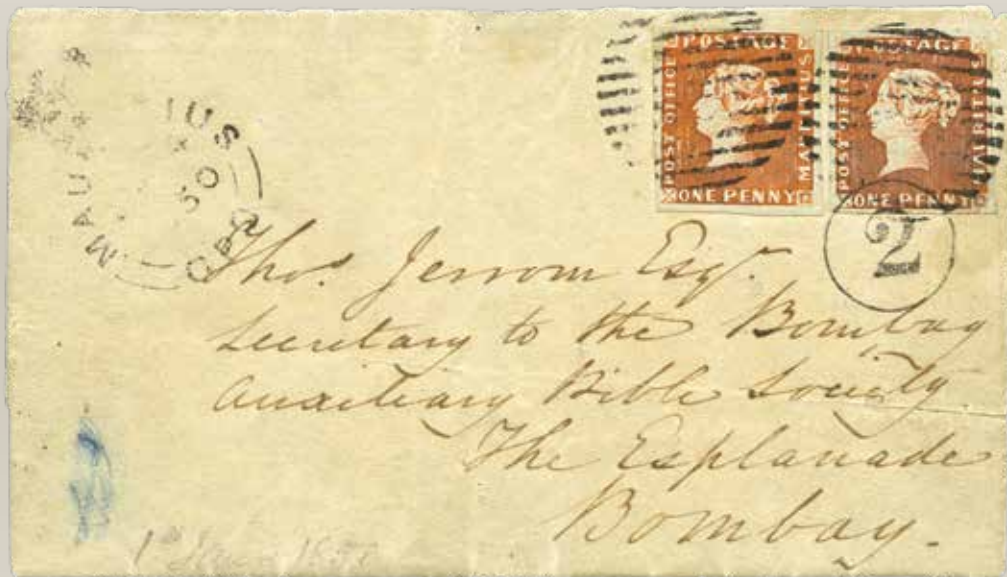 POSTAGE
POST OFFICE
MAURITIUS
ONE PENNY
POSTAGE
POST OFFICE
MAURITIUS
ONE PENNY
MAU IUS
50
2
Thos. Jerrom Esqr.
Secretary to the Bombay
Auxiliary Bible Society
The Esplanade
Bombay.